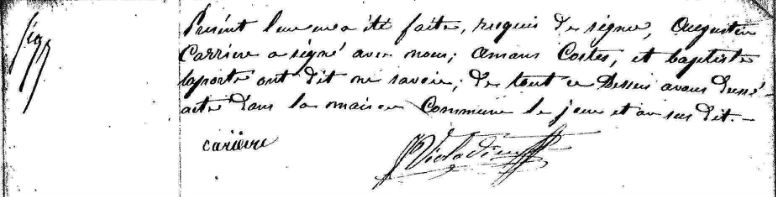 Présent leur en a été faite, requis de signer, Augustin
Carriere a signé avec nous; amans Costes, et baptiste
laporte ont dit ne savoir, de tout ce dessus avons dressé
acte dans la maison Commune le jour et an sus dit.—
carriere